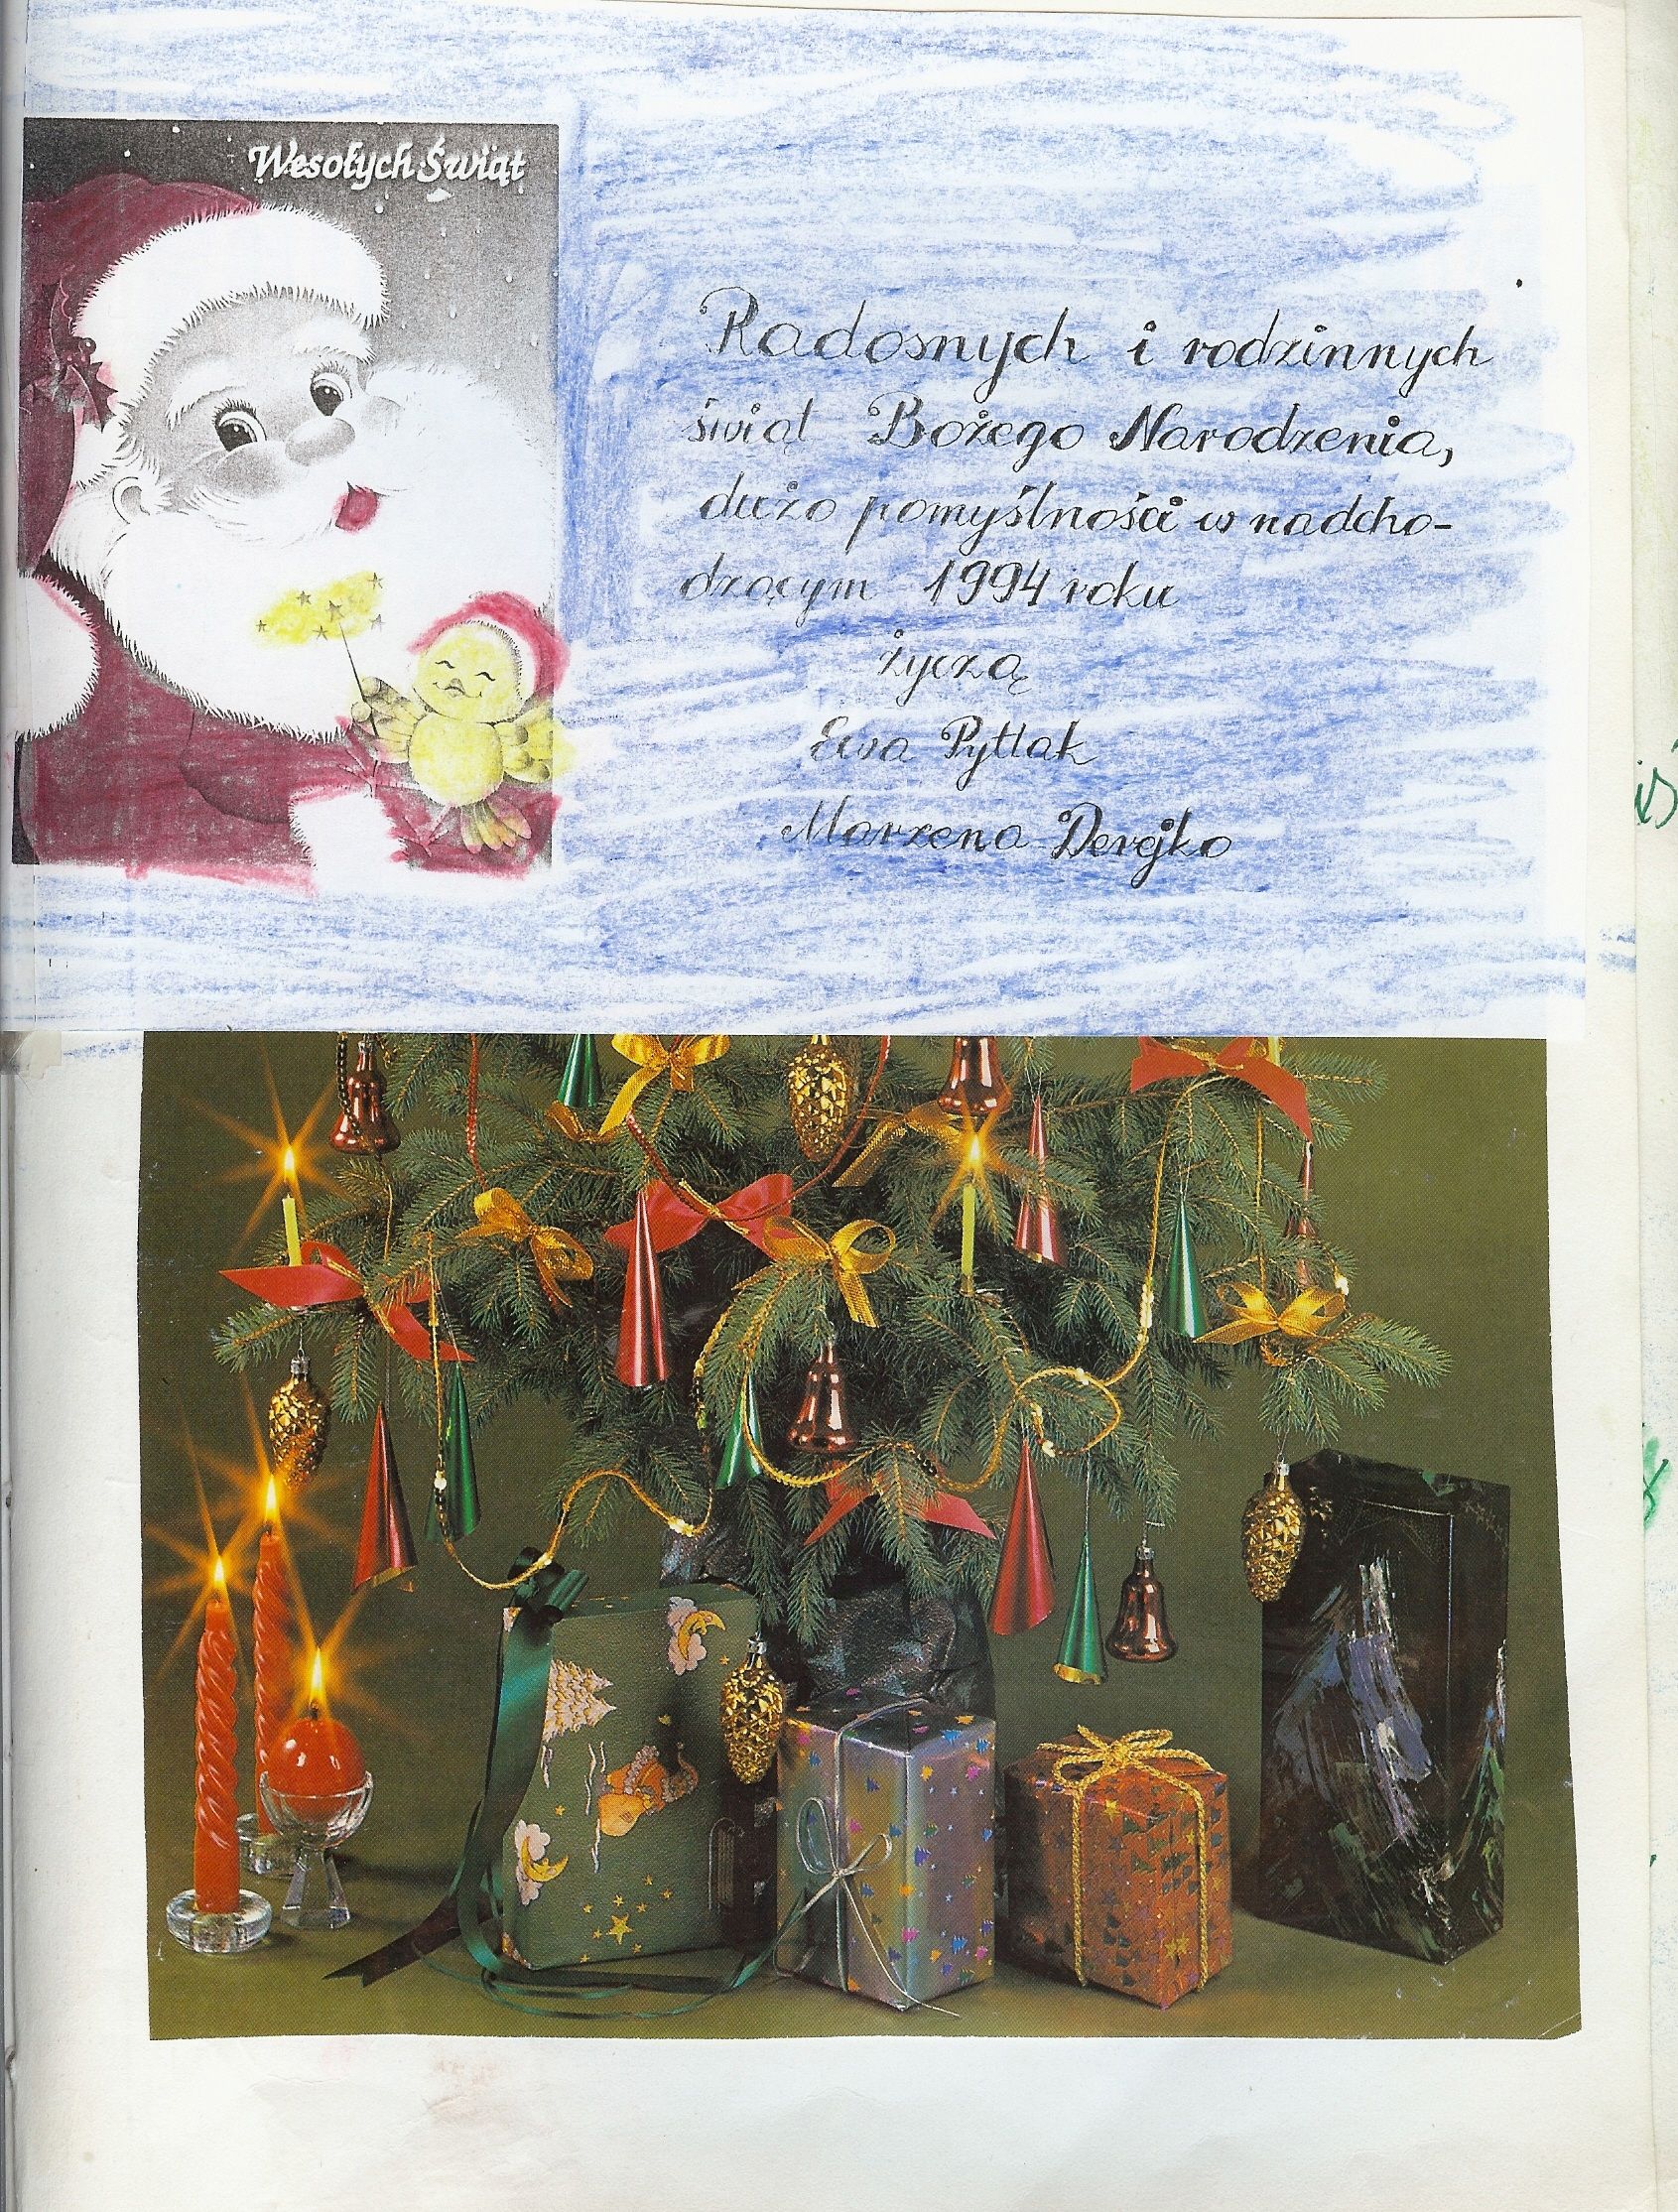 Wesołych Świąt
Radosnych i rodzinnych
świąt Bożego Narodzenia,
dużo pomyślności w nadcho-
dzącym 1994 roku
życzą
Ewa Pytlak
Marzena Derejko